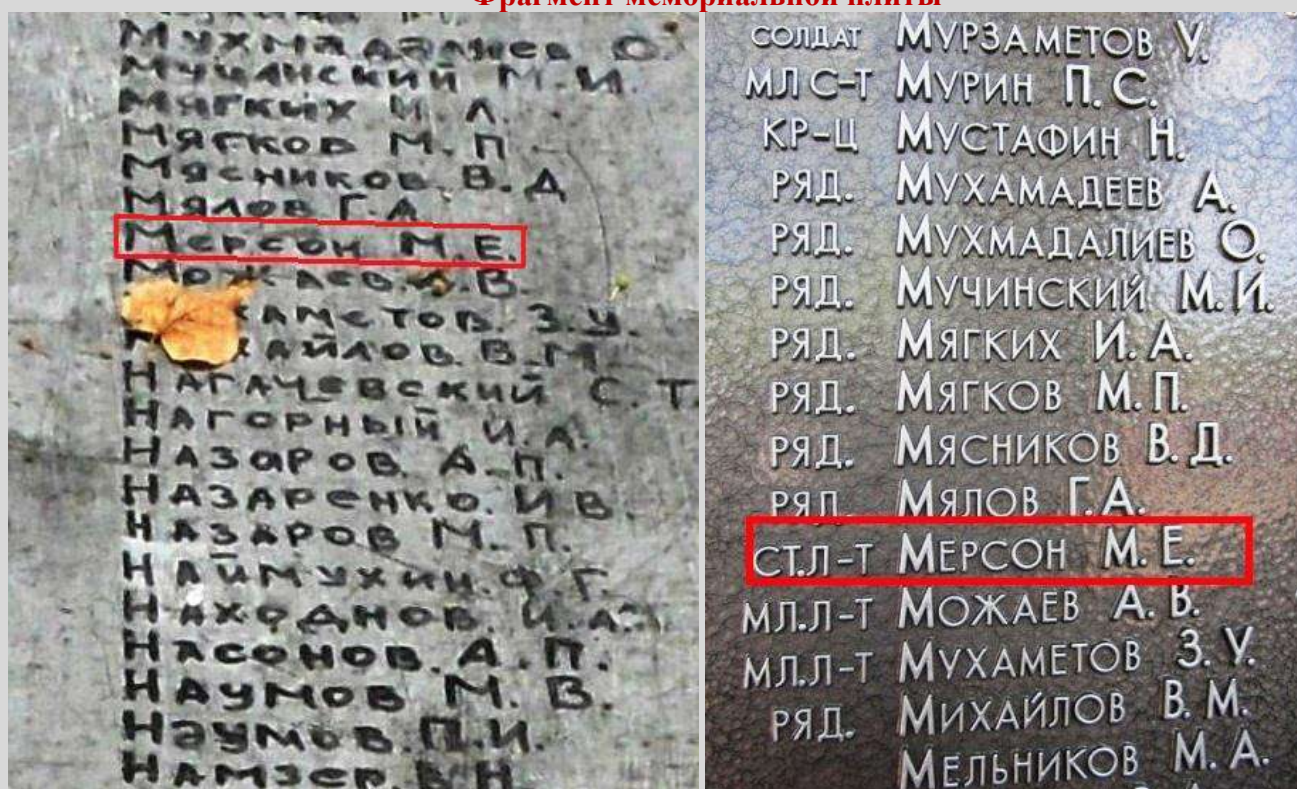 Фрагмент мемориальной плиты
МУХМАДАЛИЕВ О.
МУЧИНСКИЙ М.И.
МЯГКИХ И.А.
МЯГКОВ М.П
МЯСНИКОВ В.Д
МЯЛОВ Г.А
МЕРСОН М.Е.
МОЖАЕВ А.В.
В.М.
НАГАЧЕВСКИЙ С.Т.
НАГОРНЫЙ И.А.
НАЗАРОВ. А.П.
НАЗАРЕНКО. И В.
НАЗАРОВ М.П.
НАЙМУХИН. Ф Г.
НАХОДНОВ. И.А.
НАСОНОВ. А.П.
НАУМОВ М. В.
НАУМОВ. П.И.
НАМЗЕР. В Н
СОЛДАТ МУРЗАМЕТОВ У.
МЛ С-Т МУРИН П. С.
КР-Ц МУСТАФИН Н.
РЯД. МУХАМАДЕЕВ А.
РЯД. МУХМАДАЛИЕВ О.
РЯД. МУЧИНСКИЙ М. И.
РЯД. МЯГКИХ И. А.
РЯД. МЯГКОВ М. П.
РЯД. МЯСНИКОВ В. Д.
РЯД. МЯЛОВ Г. А.
СТ.Л-Т МЕРСОН М. Е.
МЛ.Л-Т МОЖАЕВ А. В.
МЛ.Л-Т МУХАМЕТОВ З. У.
РЯД. МИХАЙЛОВ В. М.
МЕЛЬНИКОВ М. А.